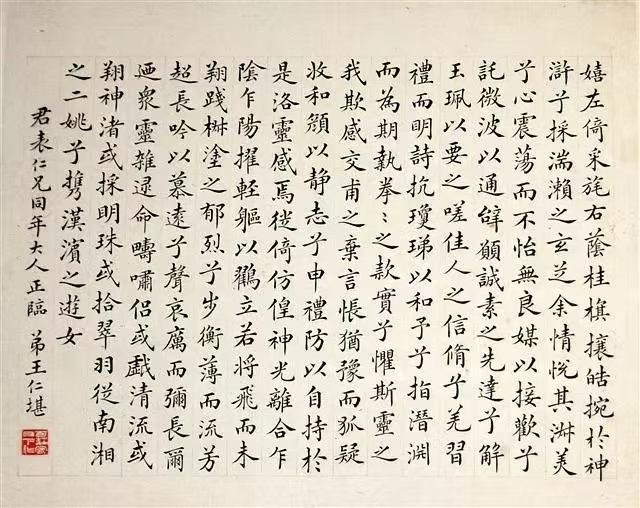 嬉左倚采旄右蔭桂旗攘皓捥於神
滸兮採湍瀨之玄芝余情悅其淑美
兮心震蕩而不怡無良媒以接歡兮
託微波以通辭願誠素之先達兮解
玉珮以要之嗟佳人之信脩兮羌習
禮而明詩抗瓊珶以和予兮指潛淵
而為期執拳〻之款實兮懼斯靈之
我欺感交甫之棄言悵猶豫而狐疑
收和顏以静志兮申禮防以自持於
是洛靈感焉徙倚仿偟神光離合乍
陰乍陽擢輕軀以鶴立若將飛而未
翔踐椒塗之郁烈兮步衡薄而流芳
超長吟以慕遠兮聲哀厲而彌長爾
迺衆靈雜遝命疇嘯侶或戲清流或
翔神渚或採明珠或拾翠羽從南湘
之二姚兮携漢濱之遊女
君表仁兄同年大人正臨 弟王仁堪